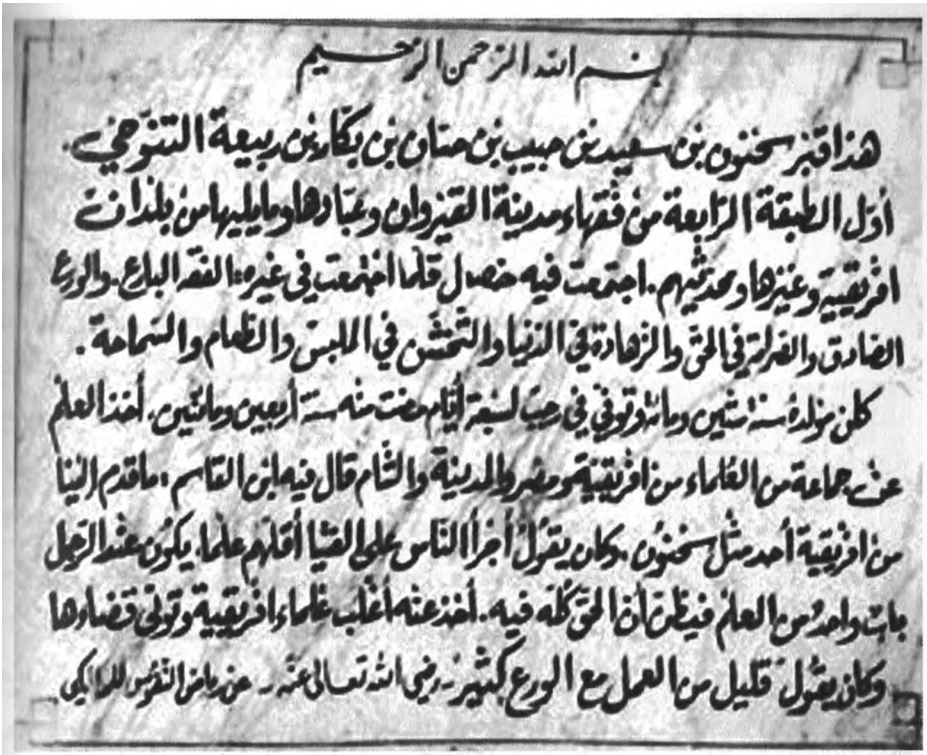 بسم الله الرحمن الرحيم
هذا قبر سحنون بن سعيد بن حبيب بن حسان بن بكار بن ربيعة التنوخي.
أول الطبقة الرابعة من فقهاء مدينة القيروان وعبادها وما يليها من بلدان
افريقية وغيرها ومحدثيهم. اجتمعت فيه خصال قلما اجتمعت في غيره: الفقه البارع. والورع
الصادق والصرامة في الحق والزهادة في الدنيا والتخشن في الملبس والطعام والسماحة.
كان مولده سنة ستين ومائة وتوفي في رجب لسبعة أيام مضت منه سنة أربعين ومائتين. أخذ العلم
عن جماعة من العلماء من افريقية ومصر والمدينة والشام قال فيه ابن القاسم: ما قدم إلينا
من افريقية أحد مثل سحنون. وكان يقول أجرأ الناس على الفتيا أقلهم علما. يكون عند الرجل
باب واحد من العلم فيظن أن الحق كله فيه. أخذ عنه أغلب علماء افريقية وتولى قضاءها
وكان يقول قليل من العمل مع الورع كثير - رضي الله تعالى عنه - عن رياض النفوس للمالكي